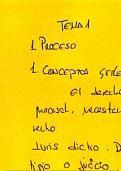 TEMA 1
1. PROCESO
1. CONCEPTOS GENE
El derecho
procesal, necesitam
recto
Juris dictio : D
tino o juicio.